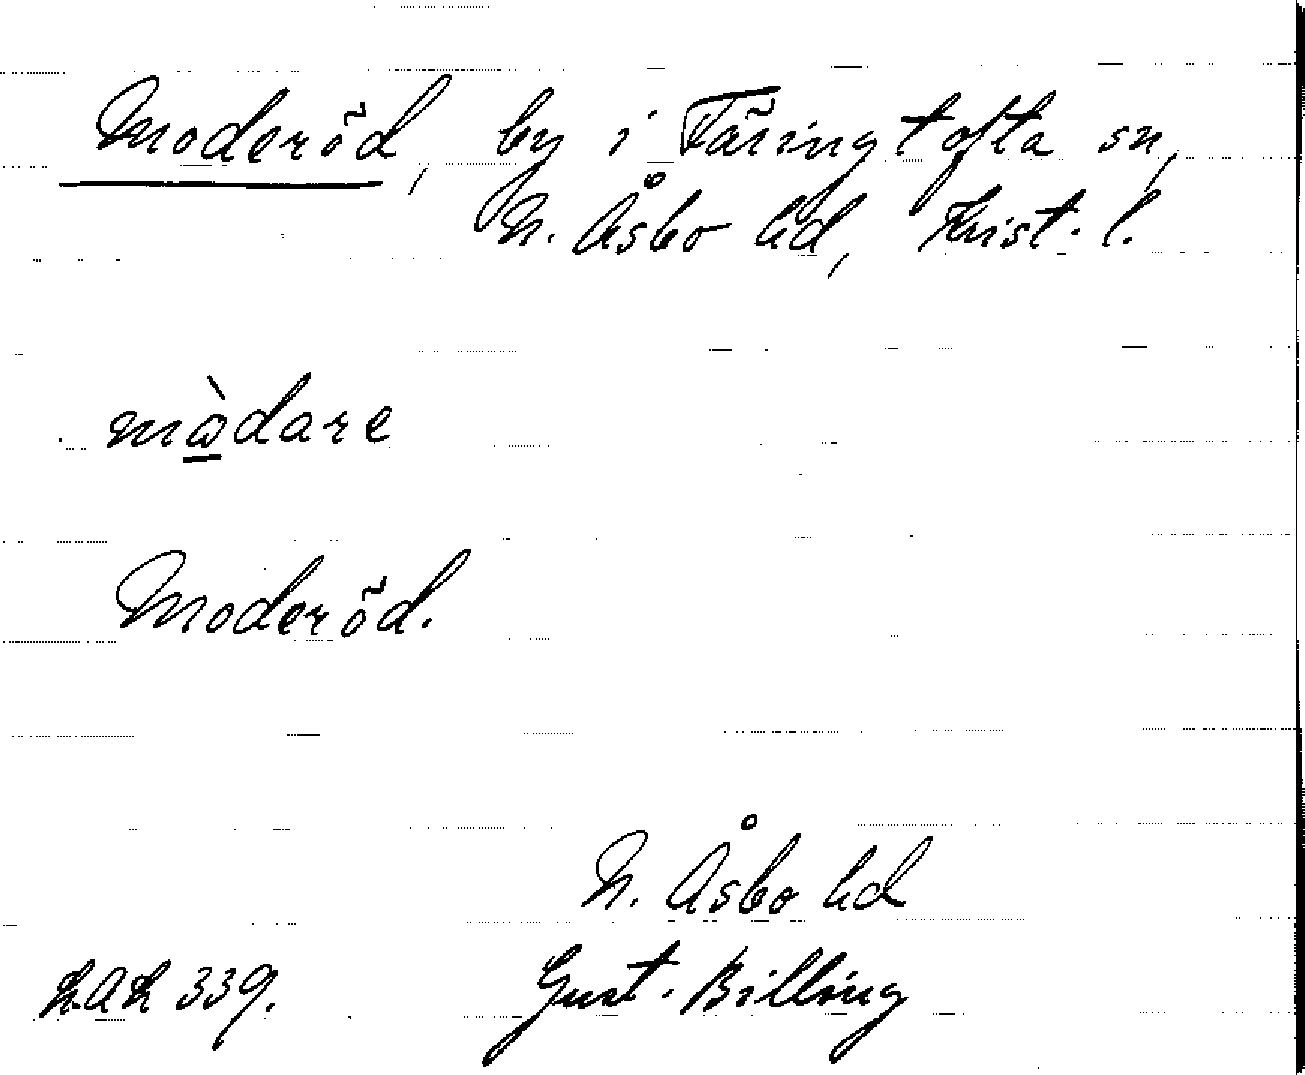 Moderöd, by i Färingtofta sn,
N. Åsbo hd, Krist. l.
mɷ̀dare
Moderöd.
N. Åsbo hd
Gust. Billing
339.